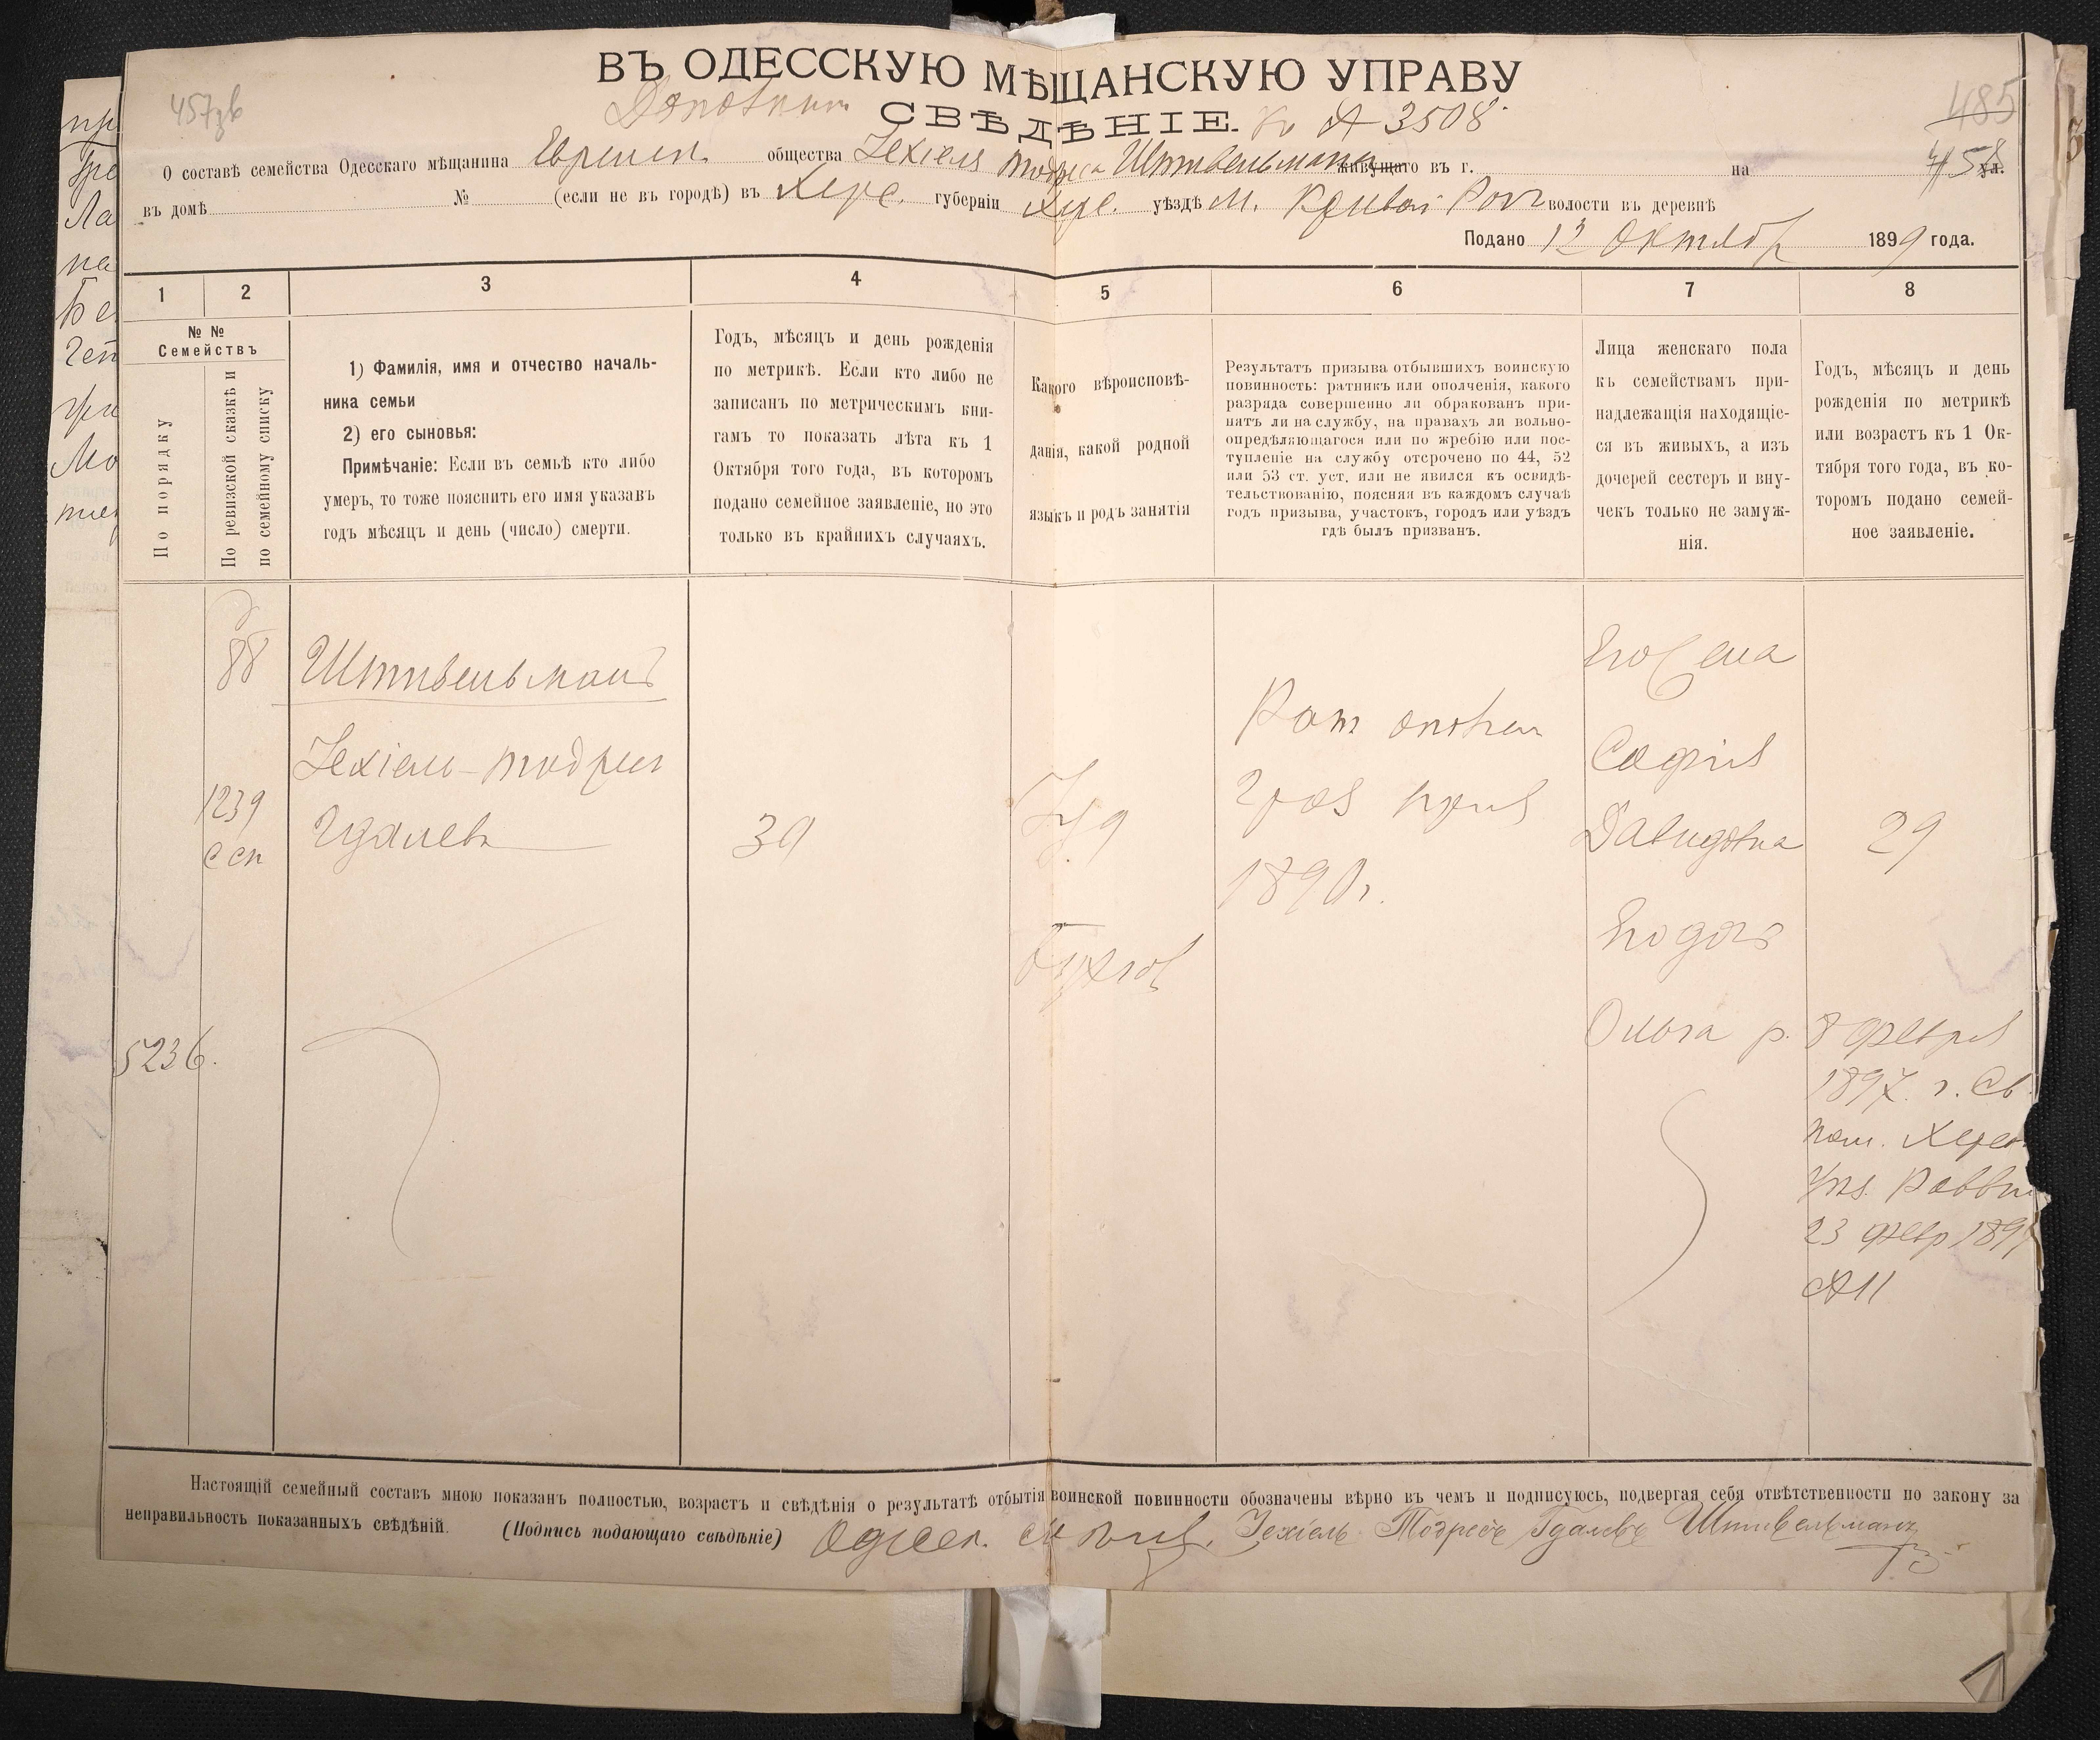 ВЪ ОДЕССКУЮ МѢЩАНСКУЮ УПРАВУ
457
485
СВѢДѢНІЕ. № 3508
О составѣ семейства Одесскаго мѣщанина Евреинъ общества Іехіеля Тодреса Штивельмана живущаго въ г. на ул.
458
въ домѣ № (если не въ городѣ) въ Херс. губерніи Хер. уѣздѣ м. Кривой Рогъ волости въ деревнѣ
Подано 12 Октябр 1899 года.
1 2 3 4 5 6 7 8
№ №
Семействъ
По порядку
По ревизской сказкѣ и
по семейному списку
1) Фамилія, имя и отчество началь-
ника семьи
2) его сыновья:
Примѣчаніе: Если въ семьѣ кто либо
умеръ, то тоже пояснить его имя указавъ
годъ мѣсяцъ и день (число) смерти.
Годъ, мѣсяцъ и день рожденія
по метрикѣ. Если кто либо не
записанъ по метрическимъ кни-
гамъ то показать лѣта къ 1
Октября того года, въ которомъ
подано семейное заявленіе, но это
только въ крайнихъ случаяхъ.
Какого вѣроисповѣ-
данія, какой родной
языкъ и родъ занятія
Результатъ призыва отбывшихъ воинскую
повинность: ратникъ или ополченія, какого
разряда совершенно ли обракованъ при-
нятъ ли на службу, на правахъ ли вольно-
опредѣляющагося или по жребію или пос-
тупленіе на службу отсрочено по 44, 52
или 53 ст. уст. или не явился къ освидѣ-
тельствованію, поясняя въ каждомъ случаѣ
годъ призыва, участокъ, городъ или уѣздъ
гдѣ былъ призванъ.
Лица женскаго пола
къ семействамъ при-
надлежащія находящіе-
ся въ живыхъ, а изъ
дочерей сестеръ и вну-
чекъ только не замуж-
нія.
Годъ, мѣсяцъ и день
рожденія по метрикѣ
или возрастъ къ 1 Ок-
тября того года, въ ко-
торомъ подано семей-
ное заявленіе.
88
Штивельманъ
Іехіель-Тодрес
Гдалев
1239
с сп
39
Іуд
Бухгол
Рат ополчен
2 раз приз
1890 г.
Его жена
София
Давидовна
29
Его дочь
Ольга р. 8 феврал
1897 г. Св.
пом. Херсо
Раввин
23 февр 1897
№ 11
5236.
Настоящій семейный составъ мною показанъ полностью, возрастъ и свѣдѣнія о результатѣ отбытія воинской повинности обозначены вѣрно въ чемъ и подписуюсь, подвергая себя отвѣтственности по закону за
неправильность показанныхъ свѣдѣній. (Подпись подающаго свѣдѣніе) Одесск. Іехіель Тодресъ Гдалевъ Штивельманъ